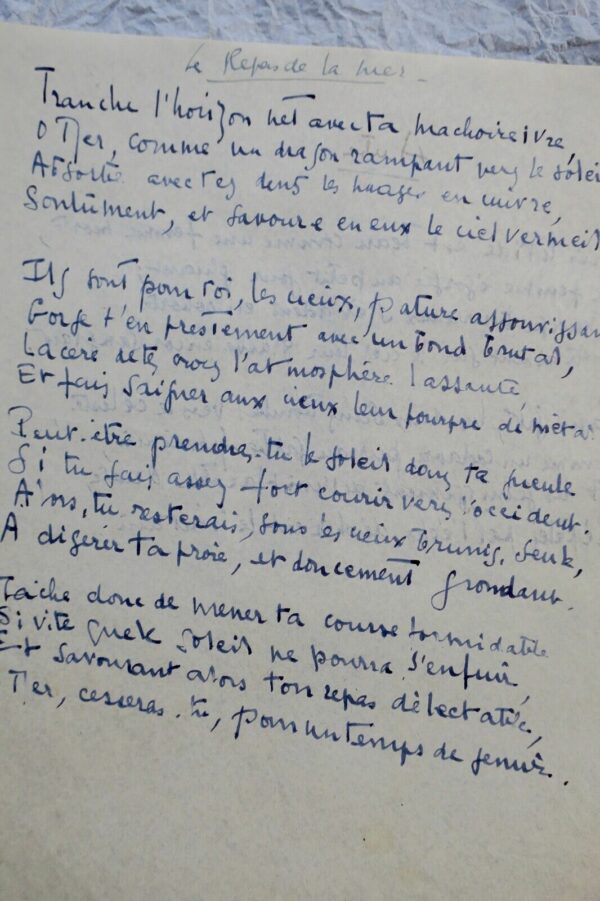 Le Repas de la mer -
Tranche l'horizon net avec ta machoire ivre,
O Mer, comme un dragon rampant vers le soleil
Absorbe avec tes dents les nuages en cuivre,
Goulûment, et savoure en eux le ciel vermeil
Ils sont pour toi, les cieux, pature assouvissan
Gorge t'en prestement avec un bond brutal,
Lacère de tes crocs l'atmosphère lassante,
Et fais saigner aux cieux leur pourpre de métal
Peut-être prendras-tu le soleil dans ta gueule
Si tu sais assez tôt courir vers l'occident;
Alors, tu resterais, sous les cieux brunis, seule,
A digérer ta proie, et doucement grondant.
Taiche donc de mener ta course formidable
Si vite que le soleil ne pourra s'enfuir,
Et savourant alors ton repas délectable,
Mer, cesseras-tu, pour un temps de gémir.